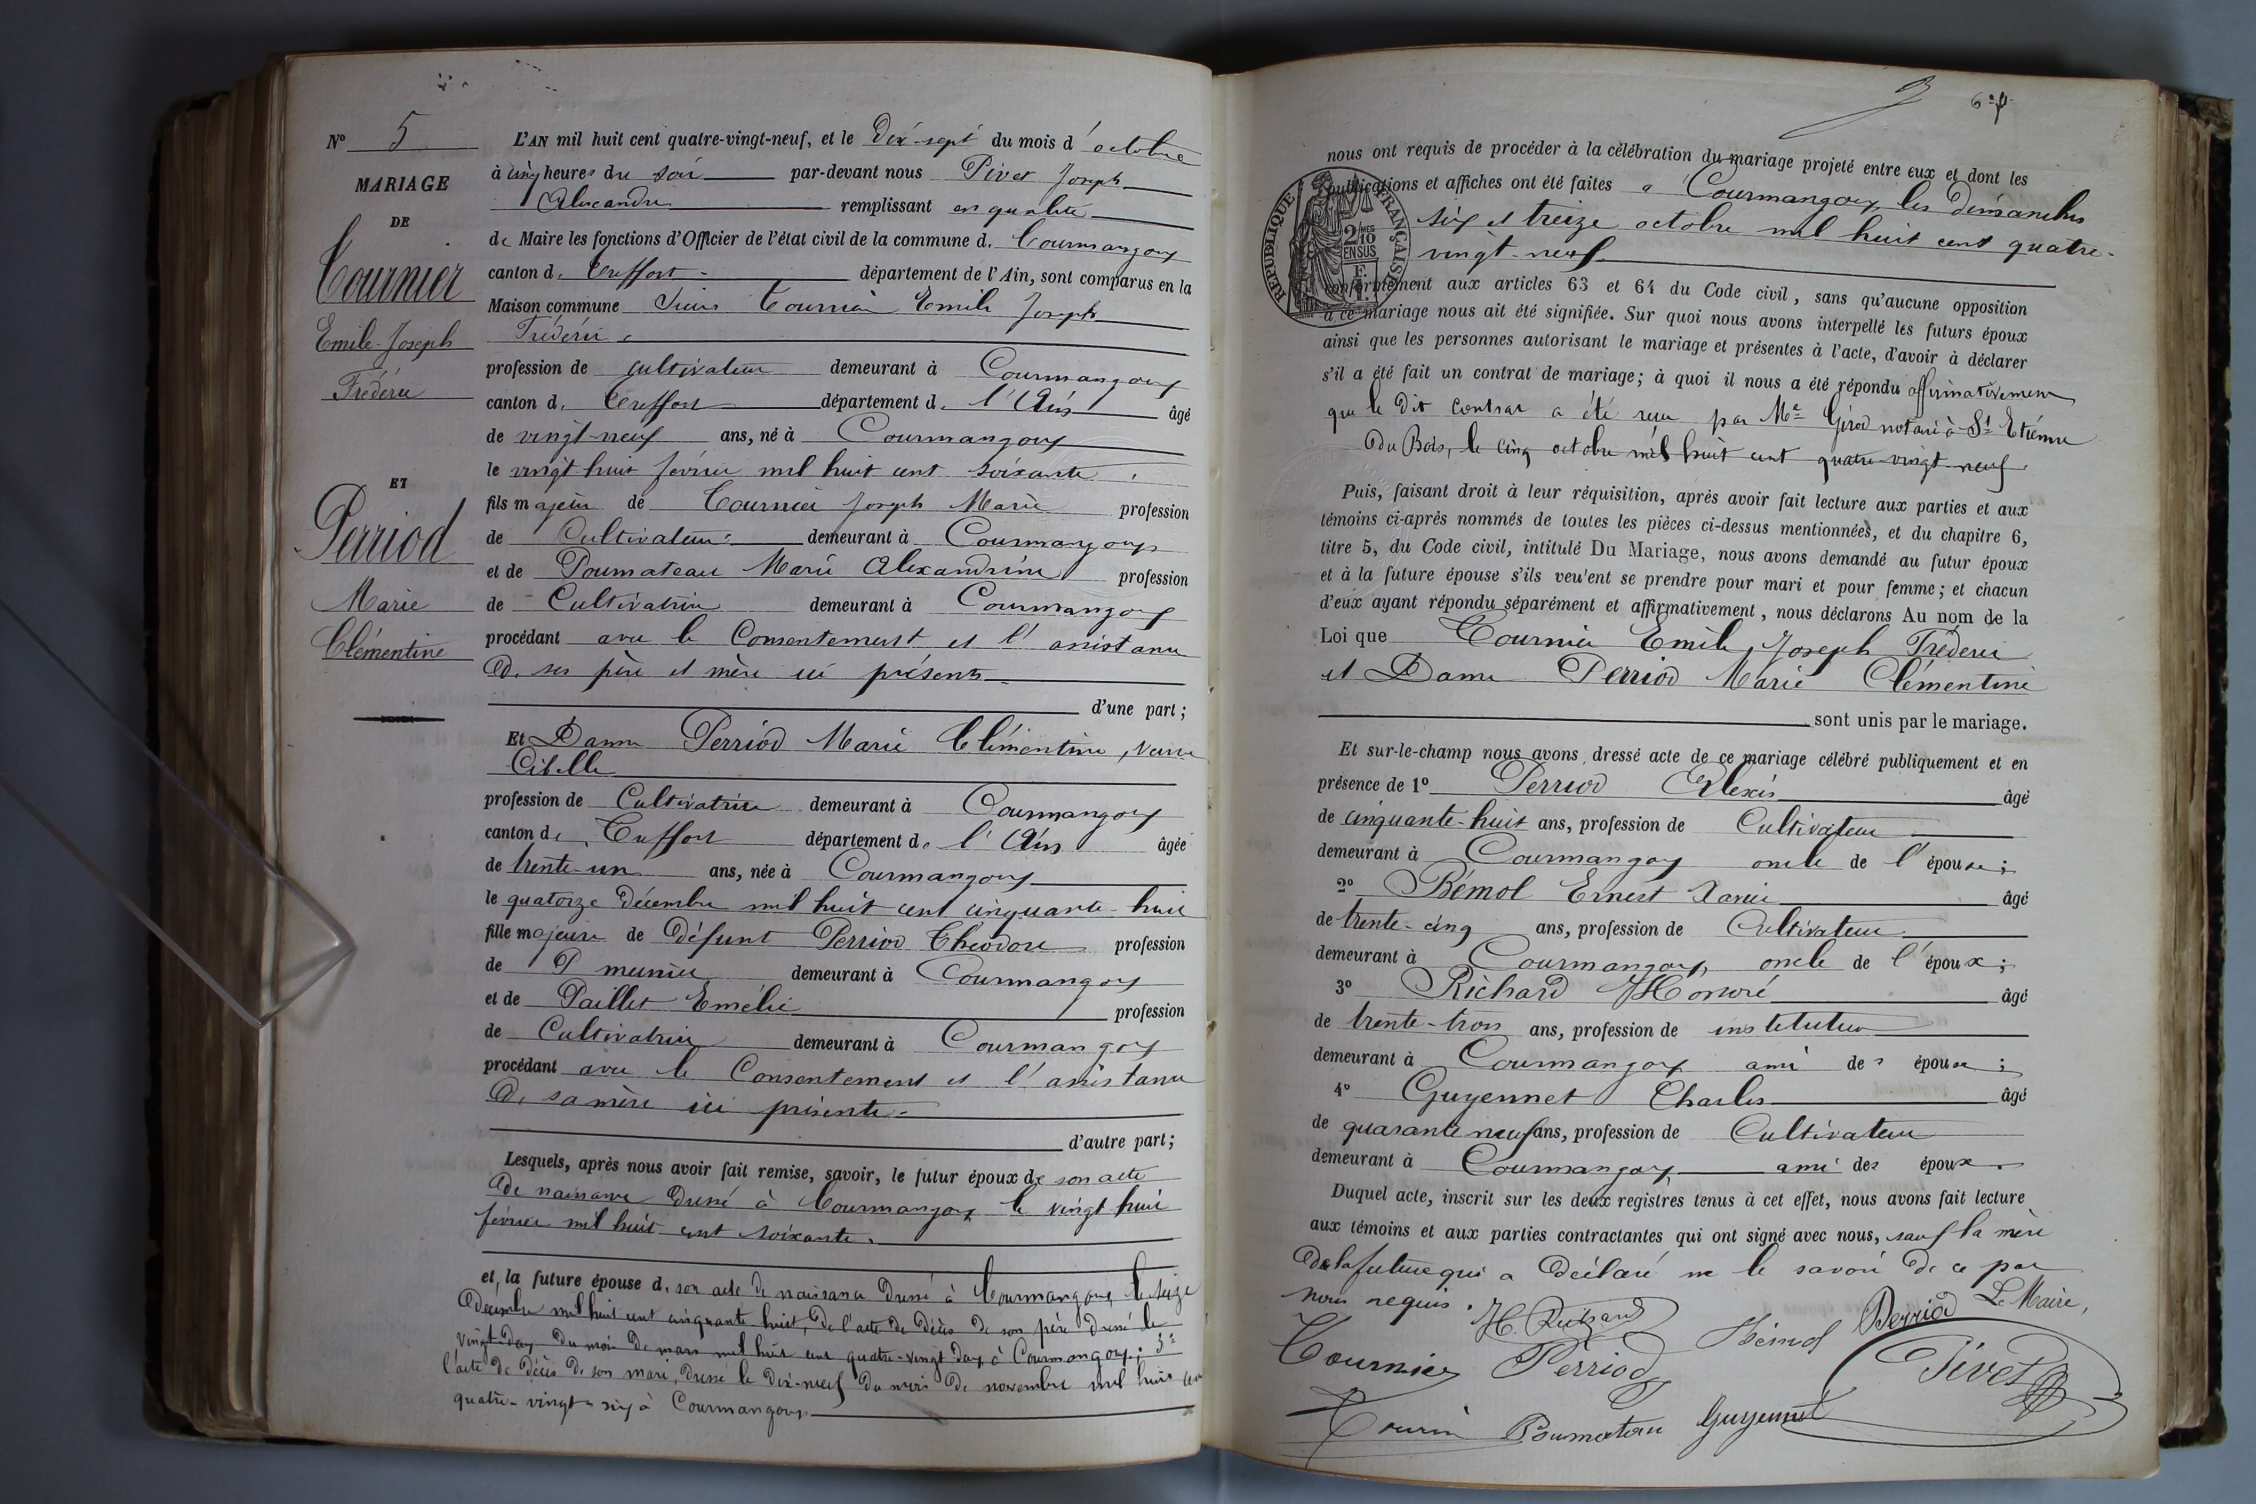 N° 5
MARIAGE
DE
Tournier
Emile-Joseph
Frédéric
ET
Perriod
Marie
Clémentine
L'AN mil huit cent quatre-vingt-neuf, et le Dix-sept du mois d'octobre
à cinq heures du soir par-devant nous Pivet Joseph
Alexandre remplissant en qualité
de Maire les fonctions d'Officier de l'état civil de la commune d. Courmangoux
canton d. Treffort département de l'Ain, sont comparus en la
Maison commune Sieur Tournier Emile Joseph
Frédéric
profession de cultivateur demeurant à Courmangoux
canton d. Treffort département d. l'Ain âgé
de vingt-neuf ans, né à Courmangoux
le vingt huit février mil huit cent soixante
fils majeur de Tournier Joseph Marie profession
de Cultivateur demeurant à Courmangoux
et de Poumateau Marie Alexandrine profession
de Cultivatrice demeurant à Courmangoux
procédant avec le Consentement et l'assistance
de ses père et mère ici présents
d'une part;
Et Dame Perriod Marie Clémentine, veuve
Cibelle
profession de Cultivatrice demeurant à Courmangoux
canton d. Treffort département d. l'Ain âgée
de trente-un ans, née à Courmangoux
le quatorze Décembre mil huit cent cinquante-huit
fille majeure de défunt Perriod Théodore profession
de meunier demeurant à Courmangoux
et de Paillet Emélie profession
de Cultivatrice demeurant à Courmangoux
procédant avec le Consentement et l'assistance
de sa mère ici présente
d'autre part;
Lesquels, après nous avoir fait remise, savoir, le futur époux de son acte
de naissance Dressé à Courmangoux le vingt huit
février mil huit cent soixante.
et, la future épouse d. son acte de naissance Dressé à Courmangoux le seize
Décembre mil huit cent cinquante huit, de l'acte de Décès de son père dressé le
vingt-Deux du mois de mars mil huit cent quatre-vingt Deux à Courmangoux; 3°
l'acte de Décès de son mari, Dressé le Dix-neuf du mois de novembre mil huit cent
quatre-vingt-six à Courmangoux
nous ont requis de procéder à la célébration du mariage projeté entre eux et dont les
publications et affiches ont été faites à Courmangoux, les dimanches
six et treize octobre mil huit cent quatre-
vingt-neuf
RÉPUBLIQUE FRANÇAISE
2/10
EN SUS
conformément aux articles 63 et 64 du Code civil, sans qu'aucune opposition
à ce mariage nous ait été signifiée. Sur quoi nous avons interpellé les futurs époux
ainsi que les personnes autorisant le mariage et présentes à l'acte, d'avoir à déclarer
s'il a été fait un contrat de mariage; à quoi il nous a été répondu affirmativement
que le dit contrat a été reçu par Me Girod notaire à St Etienne
Du Bois, le cinq octobre mil huit cent quatre-vingt-neuf.
Puis, faisant droit à leur réquisition, après avoir fait lecture aux parties et aux
témoins ci-après nommés de toutes les pièces ci-dessus mentionnées, et du chapitre 6,
titre 5, du Code civil, intitulé Du Mariage, nous avons demandé au futur époux
et à la future épouse s'ils veulent se prendre pour mari et pour femme; et chacun
d'eux ayant répondu séparément et affirmativement, nous déclarons Au nom de la
Loi que Tournier Emile Joseph Frédéric
et Dame Perriod Marie Clémentine
sont unis par le mariage.
Et sur-le-champ nous avons dressé acte de ce mariage célébré publiquement et en
présence de 1° Perriod Alexis âgé
de cinquante-huit ans, profession de Cultivateur
demeurant à Courmangoux oncle de l'épouse;
2° Bémol Ernest Xavier âgé
de trente-cinq ans, profession de Cultivateur
demeurant à Courmangoux, oncle de l'époux;
3° Richard Honoré âgé
de trente-trois ans, profession de instituteur
demeurant à Courmangoux ami des époux;
4° Guyennet Charles âgé
de quarante neuf ans, profession de Cultivateur
demeurant à Courmangoux ami des époux.
Duquel acte, inscrit sur les deux registres tenus à cet effet, nous avons fait lecture
aux témoins et aux parties contractantes qui ont signé avec nous, sauf la mère
de la future qui a Déclaré ne le savoir de ce par
nous requis.
H. Richard Bémol Perriod Le Maire,
Tournier Perriod Pivet
Tournier Poumateau Guyennet